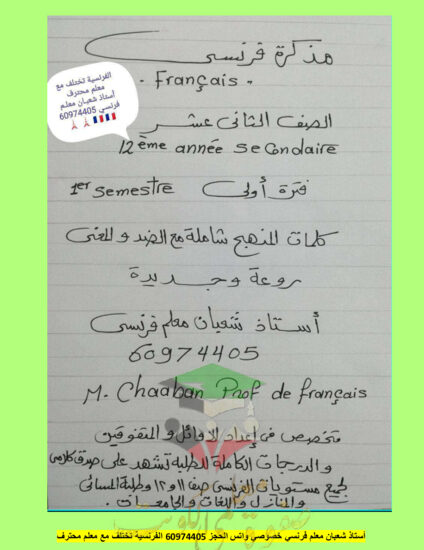 مذكرة فرنسى
Français
الفرنسية تختلف مع
معلم محترف
أستاذ شعبان معلم
فرنسي 60974405
الصف الثانى عشر
12ème année secondaire
فترة أولى 1er semestre
كلمات المنهج شاملة مع الضد والمعنى
روعة وجديدة
أستاذ شعبان معلم فرنسى
60974405
M. Chaaban Prof de français
متخصص فى إعداد الأوائل والمتفوقين
والدرجات الكاملة للطلبه تشهد على صدق كلامى
لجميع مستويات الفرنسى صف 11 و 12 وطلبة المسائى
والمنازل واللغات والجامعات.
أستاذ شعبان معلم فرنسي خصوصي واتس الحجز 60974405 الفرنسية تختلف مع معلم محترف